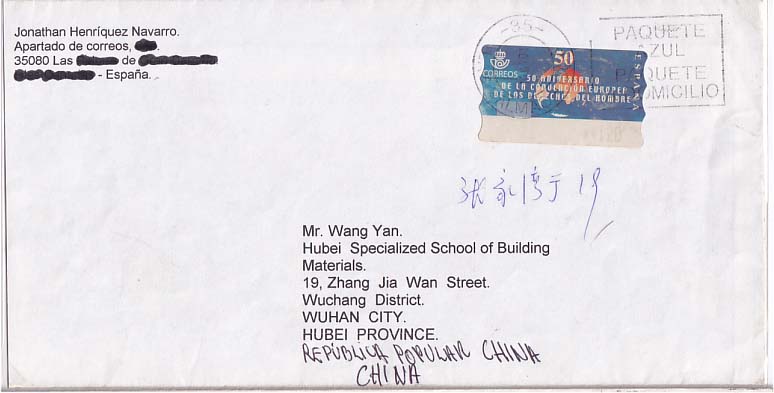 Jonathan Henríquez Navarro.
Apartado de correos,
35080 Las de
- España.
-35-
PAQUETE
AZUL
PAQUETE
DOMICILIO
50
CORREOS
ESPAÑA
50 ANIVERSARIO
DE LA CONVENCION EUROPEA
DE LOS DERECHOS DEL HOMBRE
张家湾于19
Mr. Wang Yan.
Hubei Specialized School of Building
Materials.
19, Zhang Jia Wan Street.
Wuchang District.
WUHAN CITY.
HUBEI PROVINCE.
REPÚBLICA POPULAR CHINA
CHINA